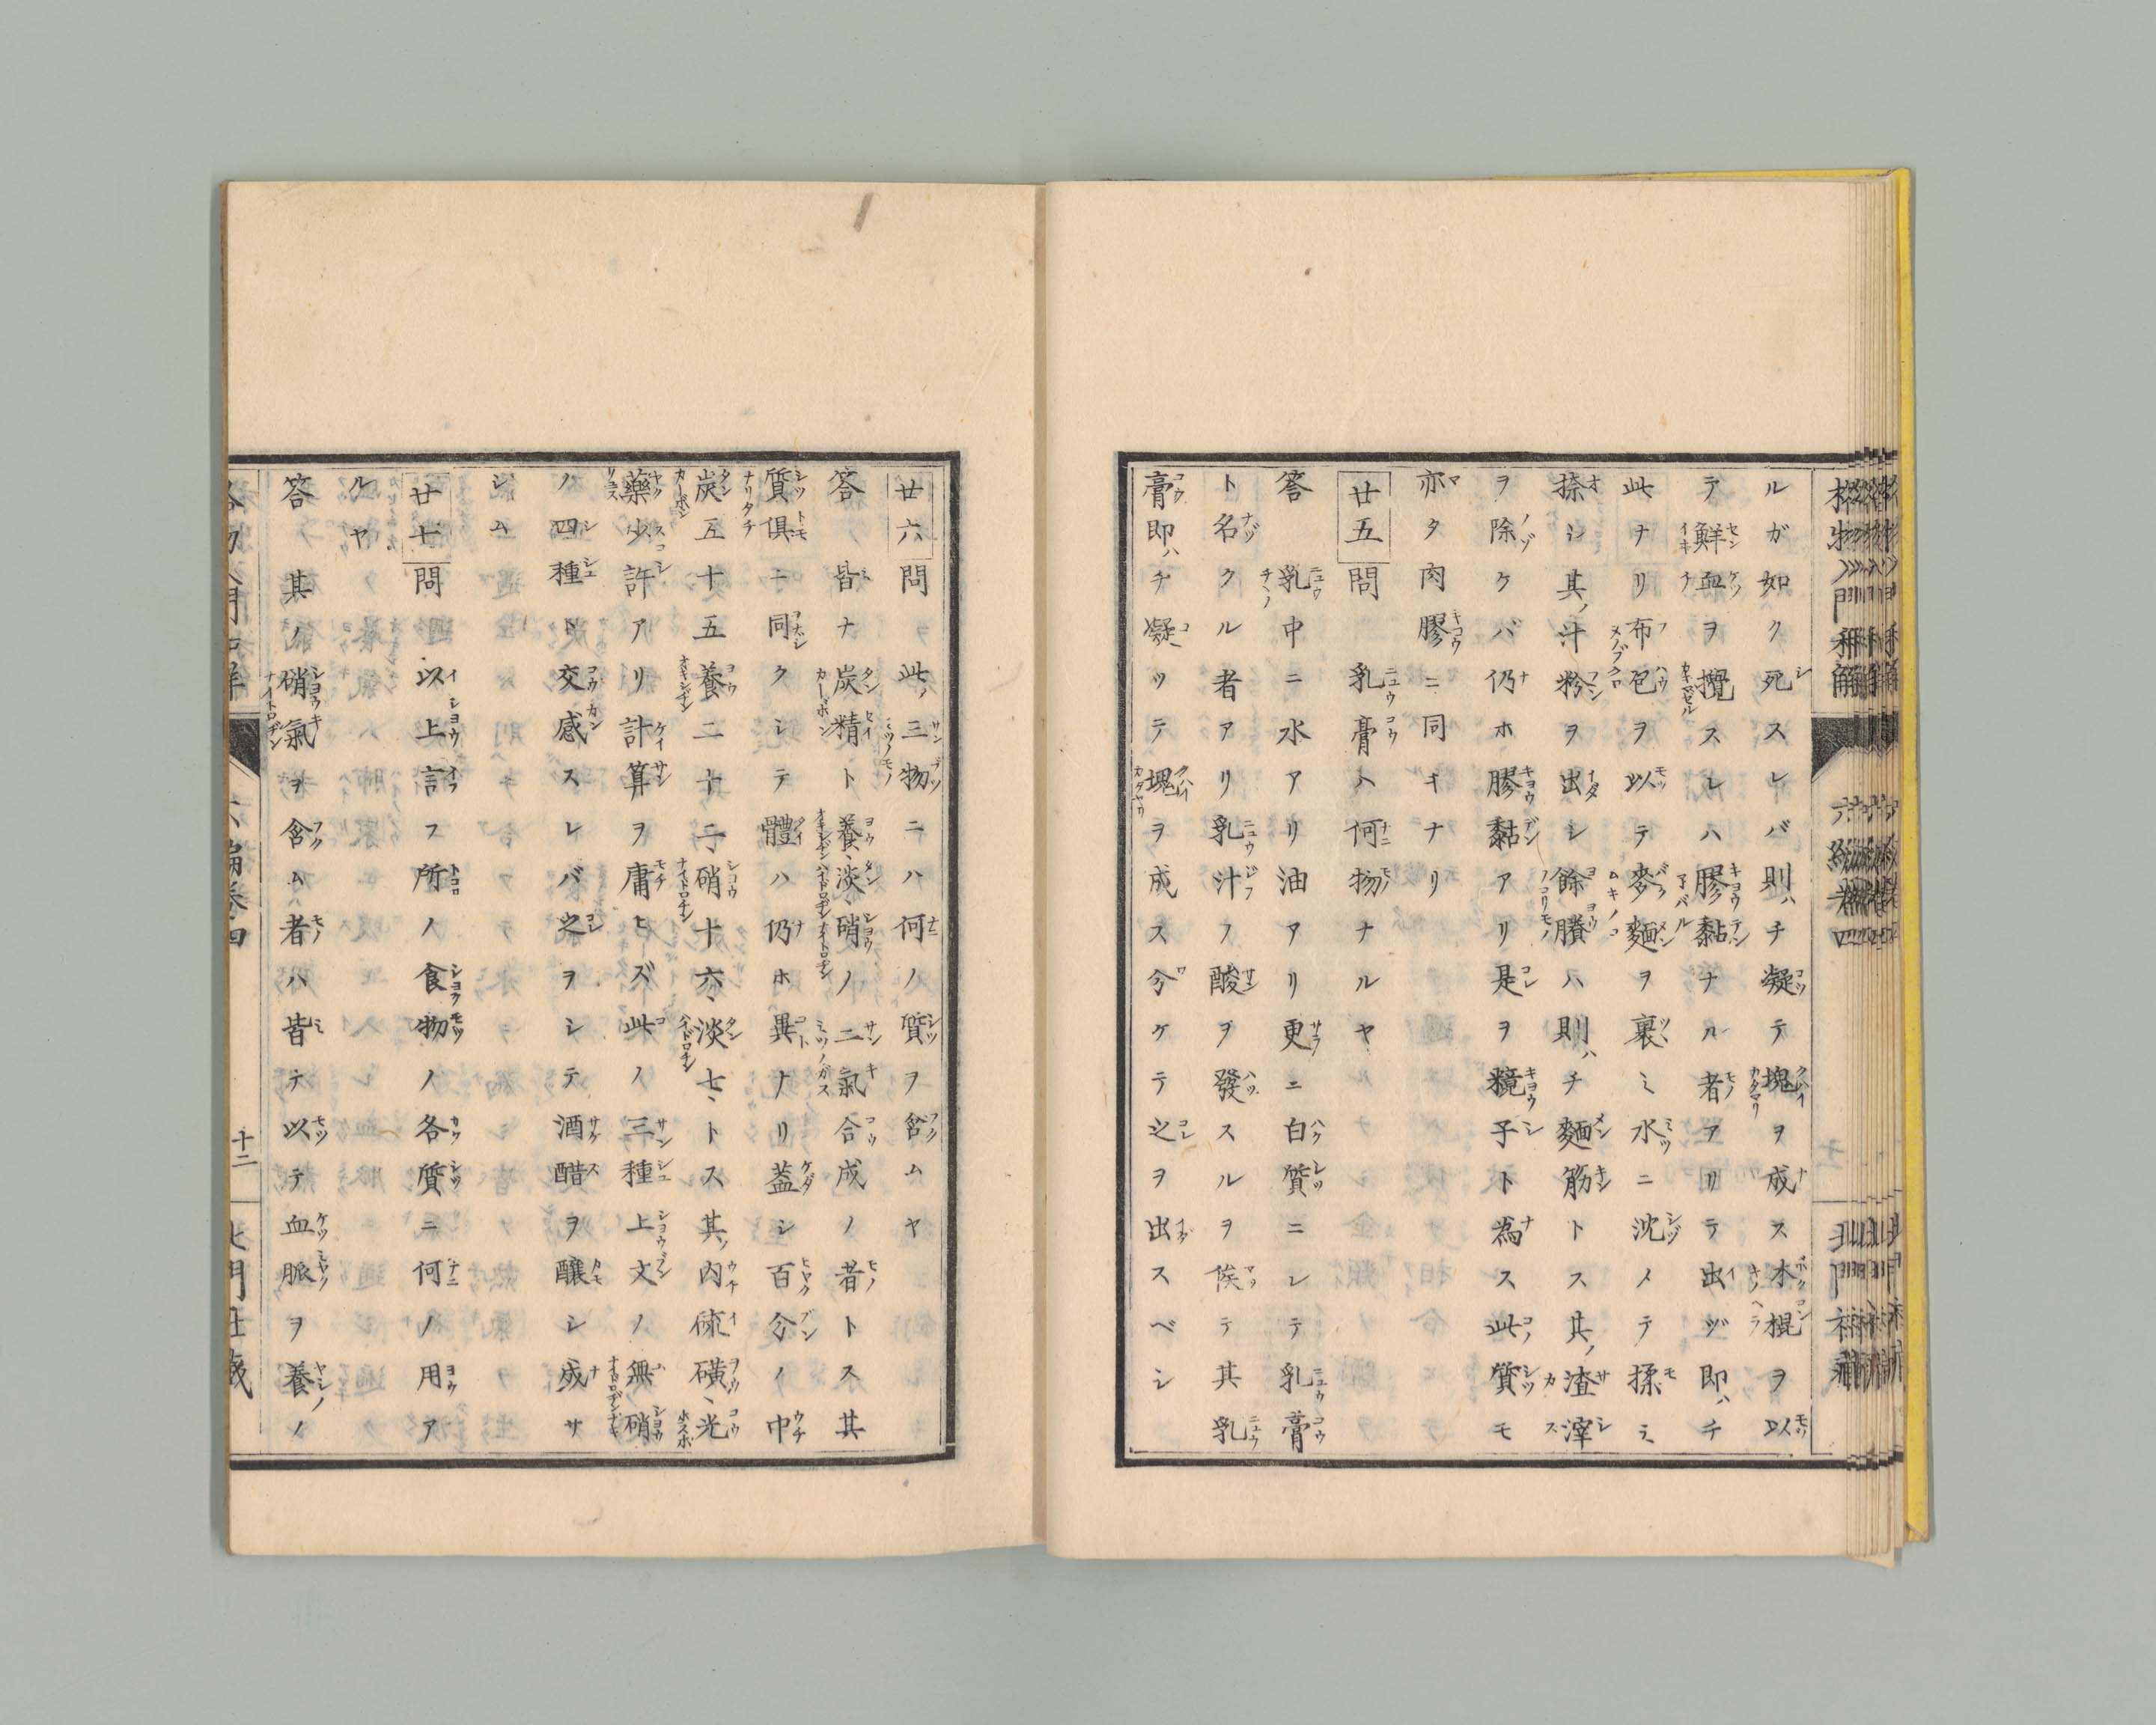 ルガ如ク死スレバ則ハチ凝テ塊ヲ成ス木棍ヲ以
テ鮮血ヲ攪スレハ膠黏ナル者アリテ出ヅ即ハチ
此ナリ布包ヲ以テ麥麵ヲ裹ミ水ニ沈メテ揉ミ
捺シ其ノ汁粉ヲ出シ餘賸ハ則ハチ麵筋トス其ノ渣滓
ヲ除ケバ仍ホ膠黏アリ是ヲ糨子ト為ス此質モ
亦タ肉膠ニ同キナリ
廿五問乳膏ハ何物ナルヤ
答乳中ニ水アリ油アリ更ニ白質ニシテ乳膏
ト名クル者アリ乳汁ノ酸ヲ發スルヲ俟テ其乳
膏即ハチ凝ツテ塊ヲ成ス分ケテ之ヲ出スベシ
廿六問此ノ三物ニハ何ノ質ヲ含ムヤ
答皆ナ炭精ト養、淡、硝ノ三氣合成ノ者トス其
質俱ニ同クシテ體ハ仍ホ異ナリ蓋シ百分ノ中
炭五十五養二十二、硝十六、淡七、トス其ノ內硫磺、光
藥少許アリ計算ヲ庸ヒズ此ノ三種上文ノ無硝
ノ四種ト交感スレバ之ヲシテ酒醋ヲ釀シ成サ
シム
廿七問以上言フ所ノ食物ノ各質ニ何ノ用ア
ルヤ
答其ノ硝氣ヲ含ム者ハ皆テ以テ血脈ヲ養ノ
十二